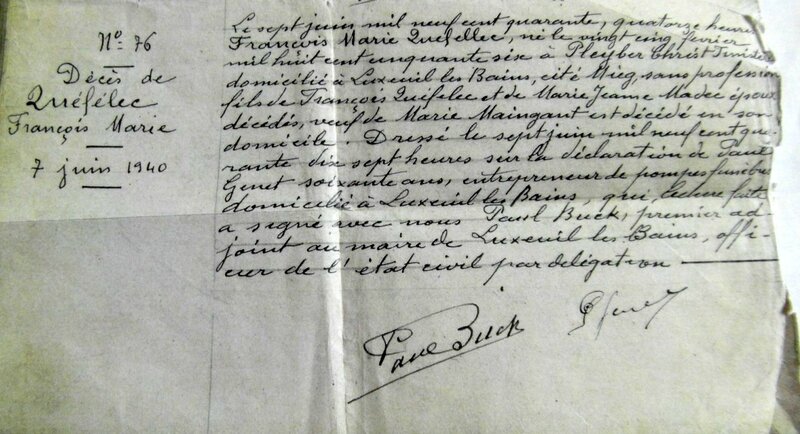 N° 76
Décès de
Quéfélec
François Marie
7 juin 1940
Le sept juin mil neuf cent quarante, quatorze heures
François Marie Quéfellec, né le vingt cinq février
mil huit cent cinquante six à Pleyber Christ
domicilié à Luxeuil les Bains, cité Mieg, sans profession
fils de François Quéfélec et de Marie Jeanne Madec époux
décédés, veuf de Marie Maingant est décédé en son
domicile. Dressé le sept juin mil neuf cent qua-
rante dix sept heures sur la déclaration de Paul
Genet soixante ans, entrepreneur de pompes funèbres
domicilié à Luxeuil les Bains, qui, lecture faite
a signé avec nous Paul Buck, premier ad-
joint au maire de Luxeuil les Bains, offi-
cier de l'état civil par délégation
Paul Buck